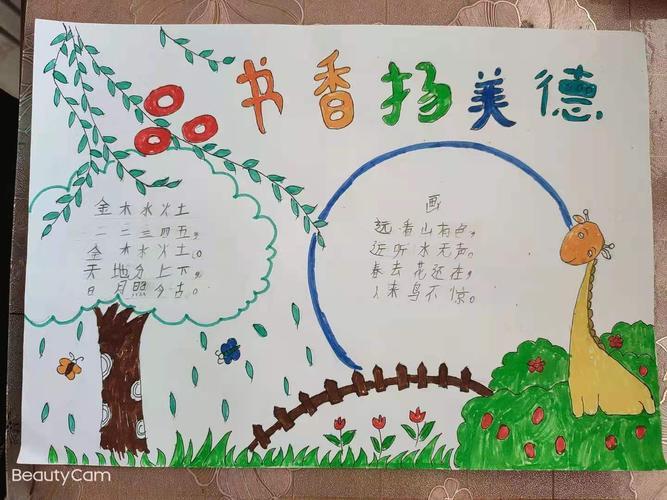 书香扬美德
金木水火土
一二三四五，
金木水火土。
天地分上下，
日月照今古。
画
远看山有色，
近听水无声。
春去花还在，
人来鸟不惊。
BeautyCam